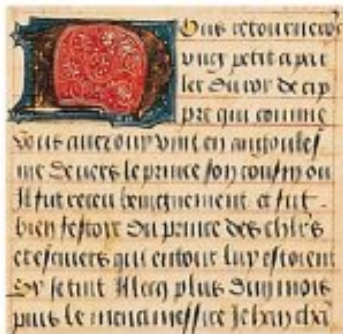 Ous retournerōs
ung petit a par
ler du roy de cip
pre qui comme
vous avez ouy vint en angoules
me devers le prince son cousin ou
Il fut receu benignement et fut
bien festoie du prince des chl'rs
et escuiers qui entour luy estoient
Or se tint Illecq plus d'ung mois
puis le mena messire Jehan chā